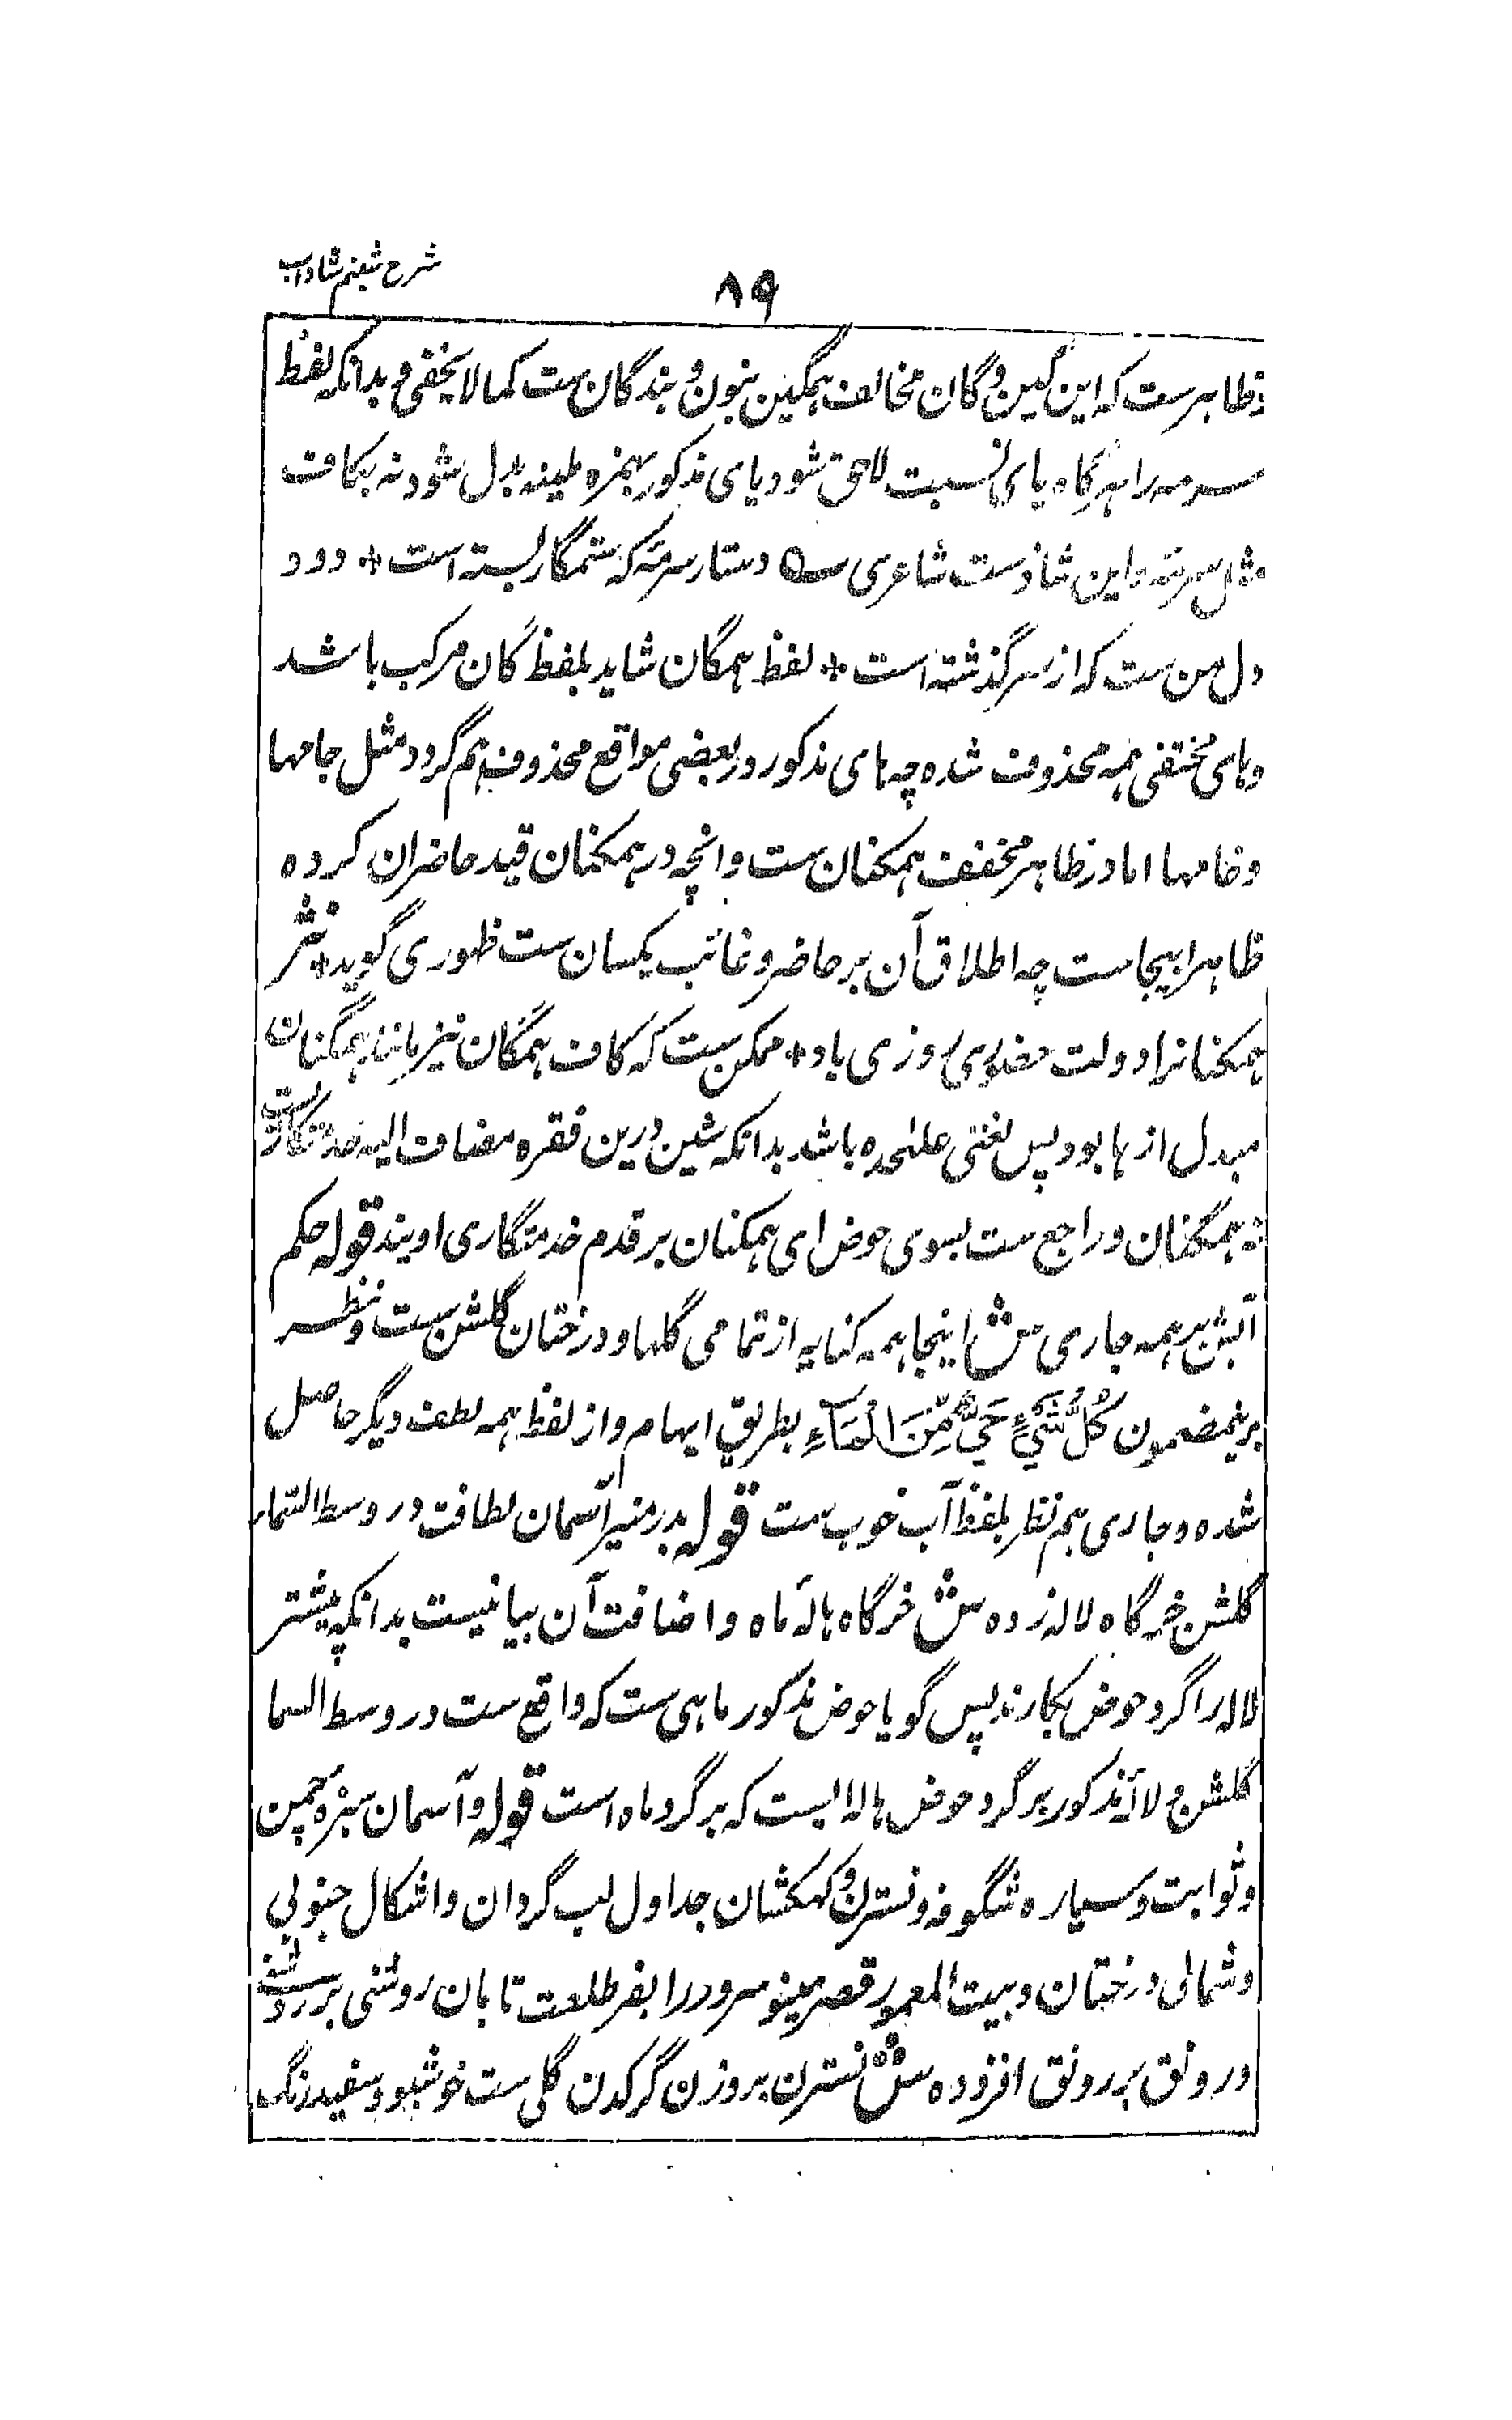 شرح شبنم شاداب
۸۹
ظاهرست که این گین و گان مخالف همگین بنون و بندگان ست کما لا یخفی و بدانکه لفظ
سرمه را هرگاه یای نسبت لاحق شود یای مذکور بهمزه ملینه بدل شود نه بکاف
مثل سرمئه و این شاذست شاعری ے دستار سرمئه که ستمگار بسته است * دود
دل من ست که از سر گذشته است * لفظ همگان شاید بلفظ گان مرکب باشد
و های مختفی همه محذوف شده چه های مذکور در بعضی مواقع محذوف هم گردد مثل جامها
و خامها اما در ظاهر مخفف همکنان ست و انچه در همکنان قید حاضران کرده
ظاهرا بیجاست چه اطلاق آن بر حاضر و غائب یکسان ست ظهوری گوید * نثر
همکنانرا دولت حضوری روزی باد * ممکن ست که کاف همگان نیز مانند همگنان
مبدل از ها بود پس لغتی علٰحده باشد بدانکه شین درین فقره مضاف الیه خدمتگاریست
نه همکنان و راجع ست بسوی حوض ای همکنان بر قدم خدمتگاری اویند قوله حکم
آبش بر همه جاری ش اینجا همه کنایه از تمامی گلها و درختان گلشن ست و نظر
برینمضمون كُلُّ شَيْءٍ حَيٍّ مِّنَ الْمَآءِ بطریق ایهام و از لفظ همه لطف دیگر حاصل
شده و جاری هم نظر بلفظ آب خوب ست قوله بدر منیر آسمان لطافت در وسط السمار
گلشن خرگاه لاله زده ش خرگاه هالهٔ ماه و اضافت آن بیانیست بدانکه پیشتر
لاله را گرد حوض بکارند پس گویا حوض مذکور ماهی ست که واقع ست در وسط السما
گلشن و لالهٔ مذکور بر گرد حوض هاله ایست که بر گرد ماه است قوله و آسمان سبزهٔ چمن
و ثوابت و سیاره شگوفه و نسترن و کهکشان جداول لب گردان و اشکال جنوبی
و شمالی درختان و بیت المعمور قصر مینو سرور را بفر طلعت تابان روشنی بر روشنی
و رونق بر رونق افزوده ش نسترن بروزن گرگدن گلی ست خوشبو و سفید رنگ